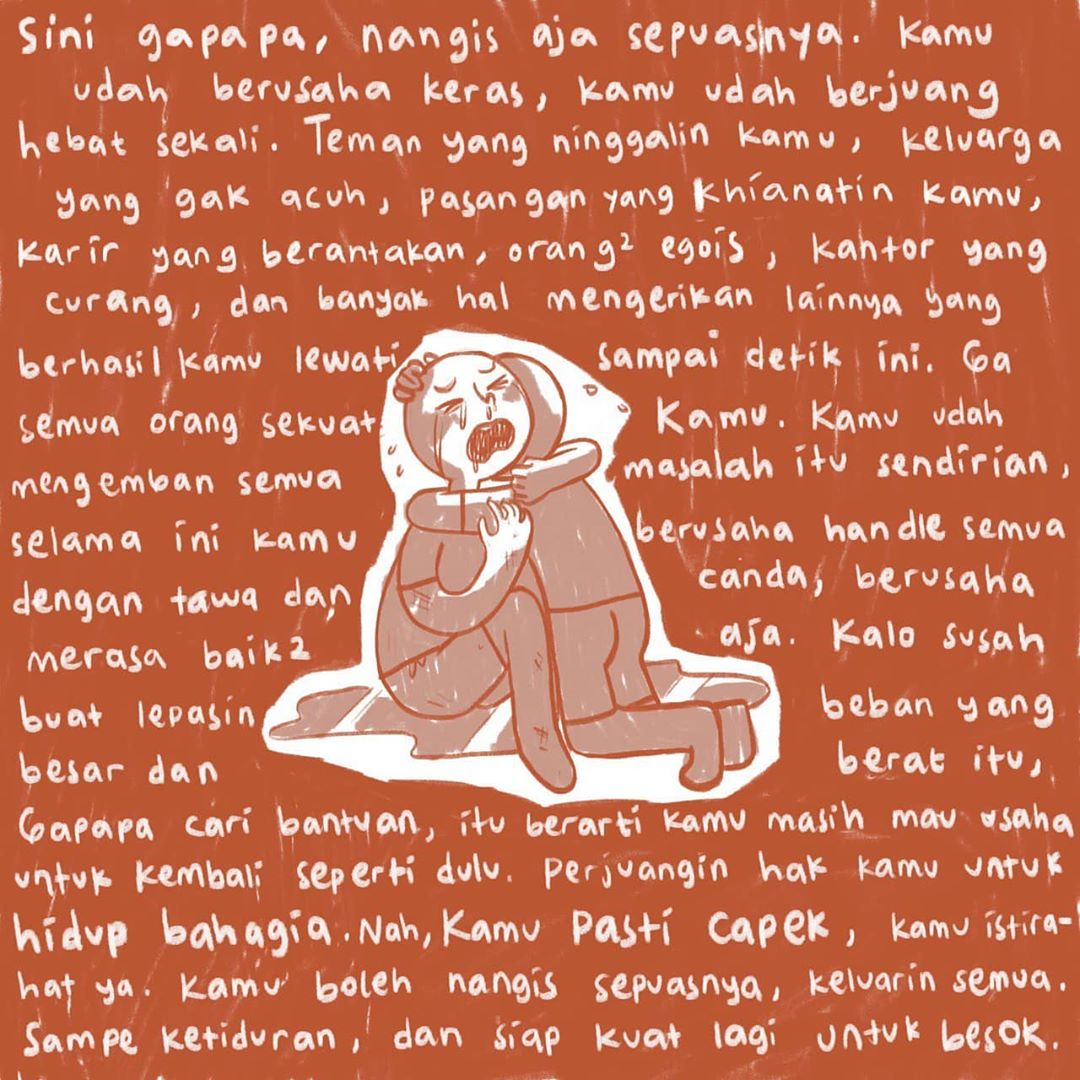 Sini gapapa, nangis aja sepuasnya. Kamu
udah berusaha keras, kamu udah berjuang
hebat sekali. Teman yang ninggalin kamu, keluarga
yang gak acuh, pasangan yang khianatin kamu,
Karir yang berantakan, orang² egois, kantor yang
curang, dan banyak hal mengerikan lainnya yang
berhasil kamu lewati sampai detik ini. Ga
semua orang sekuat Kamu. Kamu udah
mengemban semua masalah itu sendirian,
selama ini kamu berusaha handle semua
dengan tawa dan canda, berusaha
merasa baik2 aja. Kalo susah
buat lepasin beban yang
besar dan berat itu,
Gapapa cari bantuan, itu berarti kamu masih mau usaha
untuk kembali seperti dulu. Perjuangin hak kamu untuk
hidup bahagia. Nah, Kamu pasti capek, kamu istira-
hat ya. Kamu boleh nangis sepuasnya, keluarin semua.
Sampe ketiduran, dan siap kuat lagi untuk besok.